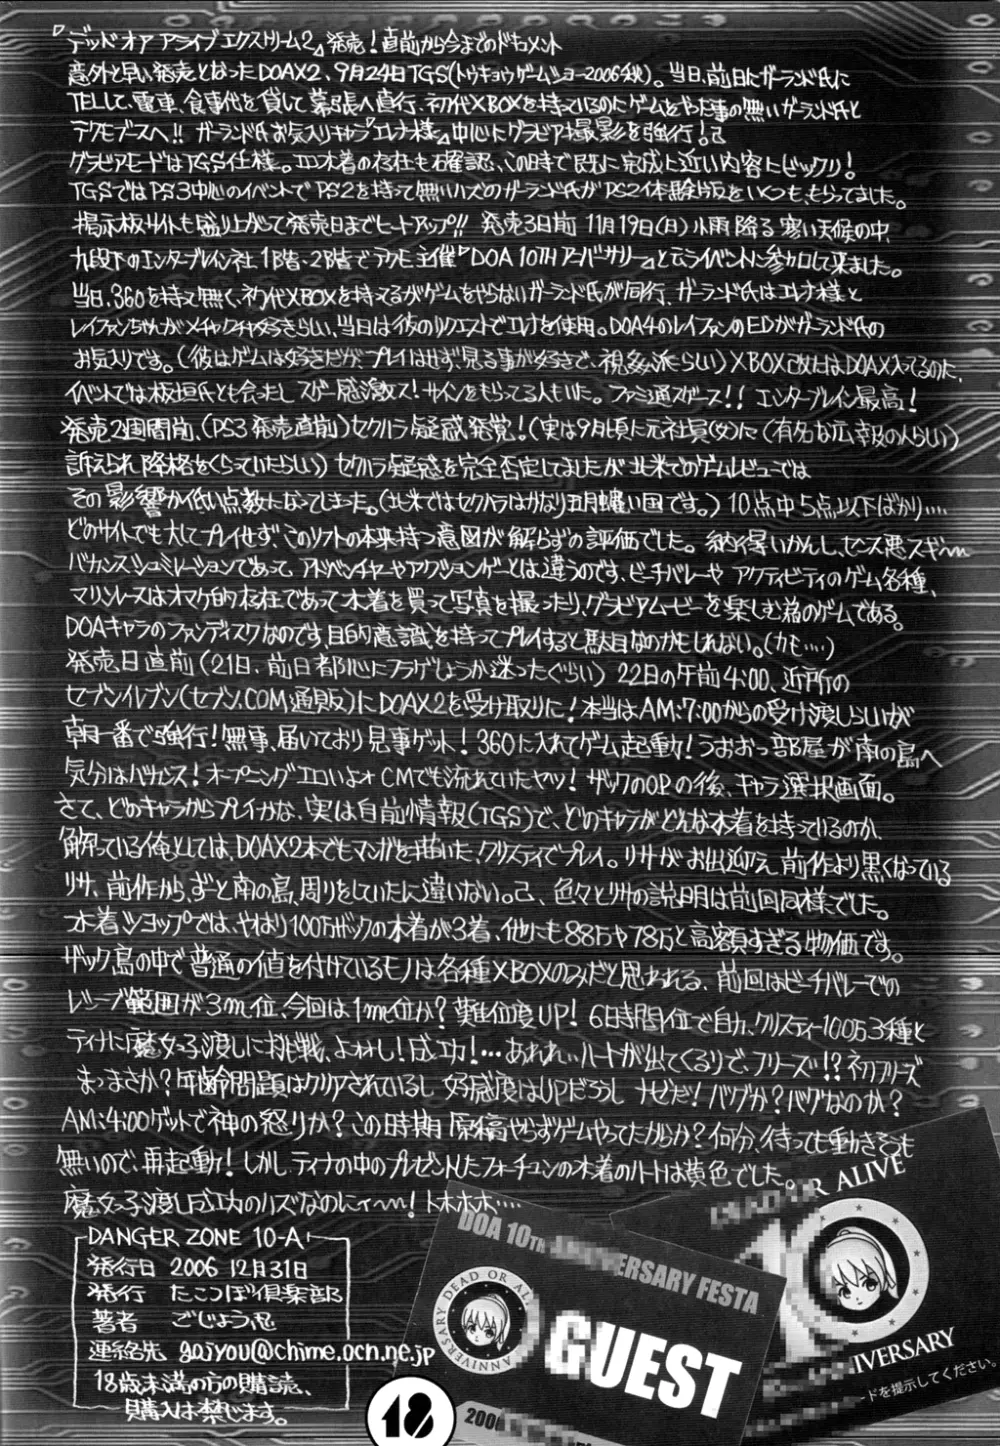 『デッド オア アライブ エクストリーム2』発売！直前から今までのドキュメント
意外と早い発売となったDOAX2、9月24日TGS(トウキョウゲームショー2006秋)。当日、前日にガーランド氏に
TELして、電車、食事代を貸して幕張へ直行、初代XBOXを持っているのにゲームをやった事の無いガーランド氏と
テクモブースへ!! ガーランド氏お気入りキャラ『エレナ様』中心にグラビア撮影を強行！
グラビアモードはTGS仕様。エロ水着の存在も確認、この時で既に完成に近い内容にビックリ！
TGSではPS3中心のイベントでPS2を持って無いハズのガーランド氏がPS2体験版をいくつも、もらってました。
掲示板サイトも盛り上がって発売日までヒートアップ!! 発売3日前 11月19日(日)小雨降る寒い天候の中、
九段下のエンターブレイン社 1階・2階でテクモ主催『DOA 10TH アニバーサリー』と云うイベントに参加して来ました。
当日、360を持って無く、初代XBOXを持ってるがゲームをやらないガーランド氏が同行、ガーランド氏はエレナ様と
レイファンちゃんがメチャクチャ好きらしい、当日は彼のリクエストでエレナを使用。DOA4のレイファンのEDがガーランド氏の
お気入りです。(彼はゲームは好きだが、プレイはせず、見る事が好きで、視姦派らしい) XBOX
イベントでは板垣氏とも会ったし スゲー感激ス！サインをもらってる人もいた。ファミ通スゲース!! エンターブレイン最高！
発売2週間前、(PS3発売直前)セクハラ疑惑発覚！(実は9月頃に元社員(女)に(有名な広報の人らしい)
訴えられ降格をくらっていたらしい)セクハラ疑惑を完全否定してましたが 北米でのゲームレビューでは
その影響か低い点数になってしまった。(北米ではセクハラはかなり五月蝿い国です。) 10点中5点以下ばかり‥‥
どのサイトでも大してプレイせず、このソフトの本来持つ意図が解らずの評価でした。納得いかんし、センス悪スギ〜
バカンスシュミレーションであって アドベンチャーやアクションゲーとは違うのです、ビーチバレーや アクティビティのゲーム各種、
マリンレースはオマケ的存在であって水着を買って写真を撮ったり、グラビアムービーを楽しむ為のゲームである。
DOAキャラのファンディスクなのです、目的意識を持ってプレイすると駄目なのかもしれない。(カモ‥‥)
発売日直前(21日、前日都心にフラゲしようか迷ったぐらい) 22日の午前4:00、近所の
セブンイレブン(セブン.COM通販)にDOAX2を受け取りに！本当はAM:7:00からの受け渡しらしいが
朝一番で強行！無事、届いており見事ゲット！360に入れてゲーム起動！うおおっ部屋が南の島へ
気分はバカンス！オープニングエロいよォ CMでも流れていたヤツ！ザックのOPの後、キャラ選択画面。
さて、どのキャラからプレイかな、実は自前情報(TGS)で、どのキャラがどんな水着を持っているのか、
解っている俺としては、DOAX2本でもマンガを描いた、クリスティでプレイ。リサがお出迎え、前作より黒くなっている
リサ、前作から、ずっと南の島、周りをしていたに違いない。 色々とリサの説明は前回同様でした。
水着ショップでは、やはり100万ザックの水着が3着、他にも88万や78万と高額すぎる物価です。
ザック島の中で普通の値を付けているモノは各種XBOXのみだと思われる、前回はビーチバレーでの
レシーブ範囲が3m位、今回は1m位か？難位度UP！6時間位で自力、クリスティー100万3種と
ティナに魔女っ子渡しに挑戦、よっしゃ！成功！‥‥あれれぃハートが出てくるりで、フリーズ!? 初フリーズ
まっまさか？年齢問題はクリアされているし 好感度はUPだろうし ナゼだ！バグか？バグなのか？
AM:4:00ゲットで神の怒りか？この時期 原稿やらずゲームやってたからか？何分、待っても動きそうも
無いので、再起動！しかし ティナの中のプレゼントしたフォーチュンの水着のハートは黄色でした。
魔女っ子渡し成功のハズなのにィ〜！トホホホ‥‥
DANGER ZONE 10-A
発行日 2006 12月31日
発行 たこつぼ倶楽部
著者 ごじょう忍
連絡先 gojyou@chime.ocn.ne.jp
18歳未満の方の購読、
購入は禁じます。
18
DOA 10TH ANNIVERSARY FESTA
DEAD OR ALIVE
ANNIVERSARY
GUEST
DEAD OR ALIVE
ANNIVERSARY
ードを提示してください。